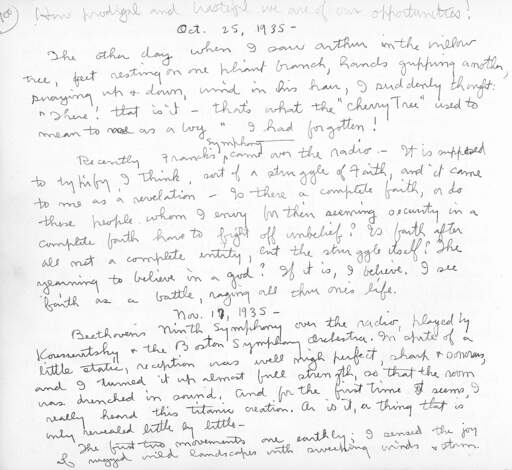 How prodigal and wasteful we are of our opportunities!
Oct. 25, 1935 -
The other day when I saw Arthur in the willow
tree, feet resting on one pliant branch, hands gripping another,
swaying up & down, wind in his hair, I suddenly thought:
"There! that is it - that's what the "Cherry Tree" used to
mean to me as a boy" I had forgotten!
Recently Franck's Symphony came over the radio - It is supposed
to typify, I think, sort of a struggle of Faith, and it came
to me as a revelation - Is there a complete faith, or do
these people whom I envy for their seeming security in a
complete faith have to fight off unbelief? Is faith after
all not a complete entity, but the struggle itself? The
yearning to believe in a god? If it is, I believe. I see
faith as a battle, raging all thru one's life.
Nov. 17, 1935 -
Beethoven's Ninth Symphony over the radio, played by
Koussevitsky & the Boston Symphony Orchestra. In spite of a
little static, reception was well nigh perfect, sharp & sonorous,
and I turned it up almost full strength, so that the room
was drenched in sound. And for the first time it seems, I
really heard this titanic creation. Or is it, a thing that is
only revealed little by little -
The first two movements are earthly; I sensed the joy
of rugged wild landscapes with sweeping winds & storm